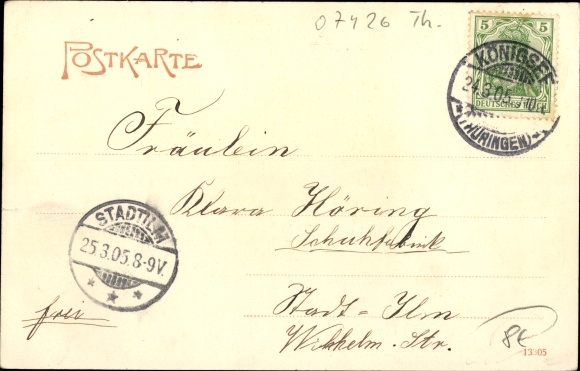 07426 Th.
POSTKARTE
5 5
DEUTSCHES REICH
KÖNIGSEE
24.3.05
(THÜRINGEN)
Fräulein
Klara Höring
Schuhfabrik
Stadt-Ilm
Wilhelm-Str.
STADTILM
25.3.05.8-9V.
frei
8€
13305